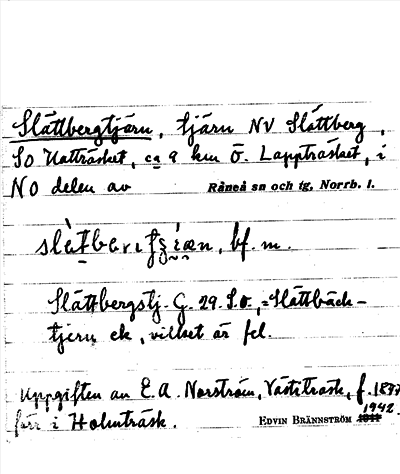 Slättbergtjärn, tjärn NV Slättberg,
SO Hatträsket, ca 9 km Ö. Lappträsket, i
NO delen av Råneå sn och tg, Norrb. l.
bf. m.
Slättbergstj. G. 29. S.o., = Slättbäck-
tjern ek, vilket är fel.
Uppgiften av E.A. Norström, Västiträsk, f. 1897
förr i Holmträsk. EDVIN BRÄNNSTRÖM 1942